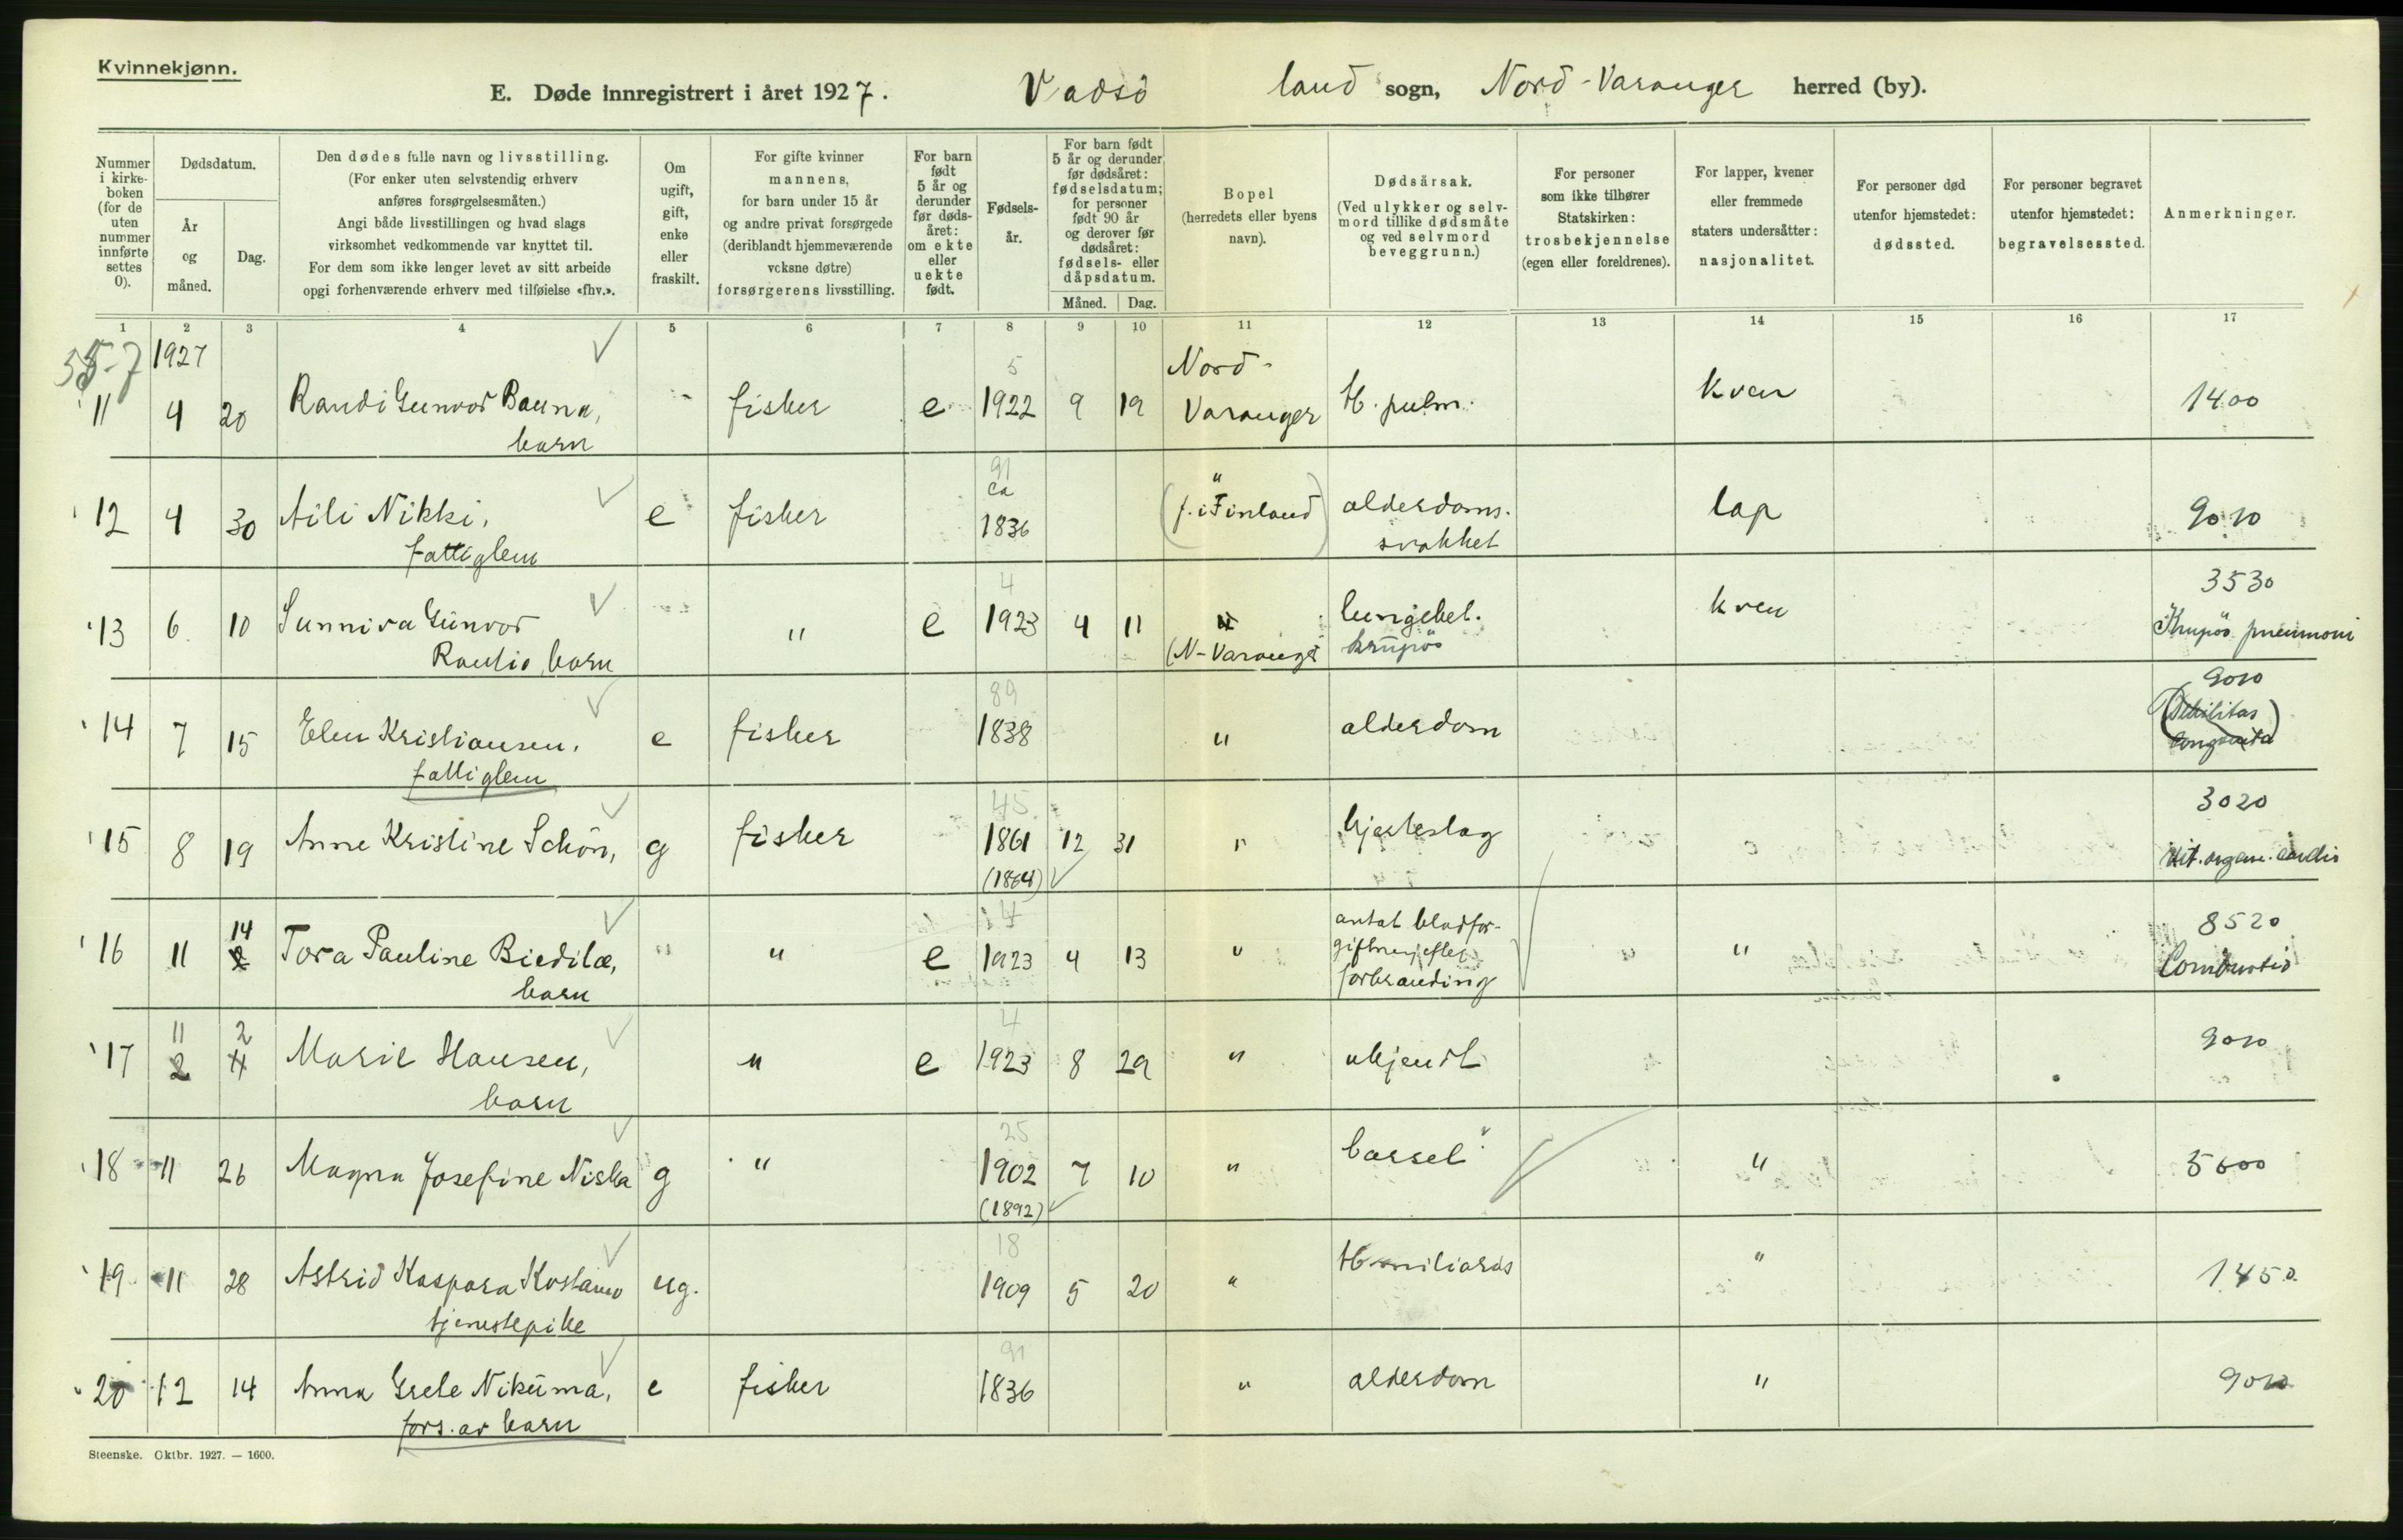 Kvinnekjønn.
E. Døde innregistrert i året 1927. Vadsö land sogn, Nord-Varanger herred (by).
Nummer i kirke-boken (for de uten nummer innførte settes 0).
Dødsdatum.
År og måned.
Dag.
Den dødes fulle navn og livsstilling.
(For enker uten selvstendig erhverv
anføres forsørgelsesmåten.)
Angi både livsstillingen og hvad slags
virksomhet vedkommende var knyttet til.
For dem som ikke lenger levet av sitt arbeide
opgi forhenværende erhverv med tilføielse «fhv.».
Om ugift, gift, enke eller fraskilt.
For gifte kvinner
mannens,
for barn under 15 år
og andre privat forsørgede
(deriblandt hjemmeværende
voksne døtre)
forsørgerens livsstilling.
For barn født 5 år og derunder før døds-året: om ekte eller uekte født.
Fødsels-år.
For barn født
5 år og derunder
før dødsåret:
fødselsdatum;
for personer
født 90 år
og derover før
dødsåret:
fødsels- eller
dåpsdatum.
Måned. Dag.
Bopel
(herredets eller byens
navn).
Dødsårsak.
(Ved ulykker og selv-
mord tillike dødsmåte
og ved selvmord
beveggrunn.)
For personer
som ikke tilhører
Statskirken:
trosbekjennelse
(egen eller foreldrenes).
For lapper, kvener
eller fremmede
staters undersåtter:
nasjonalitet.
For personer død
utenfor hjemstedet:
dødssted.
For personer begravet
utenfor hjemstedet:
begravelsessted.
Anmerkninger.
1 2 3 4 5 6 7 8 9 10 11 12 13 14 15 16 17
1927 5 Nord-
11 4 20 Randi Gunvor Bauna, fisher e 1922 9 19 Varanger tb. pulm. kven 1400
barn
91
ca "
12 4 30 Aili Nikki, e fisher 1836 (f. i Finland) alderdoms. lap 9010
fattiglem svakhet
4 3530
13 6 10 Sunniva Gunvor " e 1923 4 11 " lungebet. kven Krupøs pneumoni
Rautio, barn (N-Varanger krupøs
89 9010
14 7 15 Elen Kristiansen, e fisher 1838 " alderdom (Debilitas
fattiglem congenita)
45 3020
15 8 19 Anne Kristine Schön, g fisher 1861 12 31 " hjerteslag Vit. organ. cordis
(1864)
14 4 antat blodfor- 8520
16 11 2 Tora Pauline Biedilæ, " " e 1923 4 13 " giftning efter " Combustio
barn forbrænding
11 2 4
17 2 4 Marie Hansen, " e 1923 8 29 " ukjendt 9010
barn
25
18 11 26 Magna Josefine Niska g " 1902 7 10 " barsel " 5600
(1892)
18
19 11 28 Astrid Kaspara Kostamo ug. 1909 5 20 " tb miliaris " 1450.
tjenestepike
91
20 12 14 Anna Grete Nikuma, e fisher 1836 " alderdom " 9010
fors. av barn
Steenske. Oktbr. 1927. — 1600.